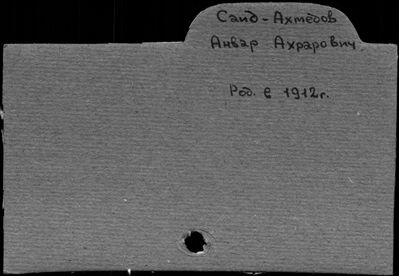 Саид-Ахмедов
Анвар Ахрарович
Род. в 1912г.